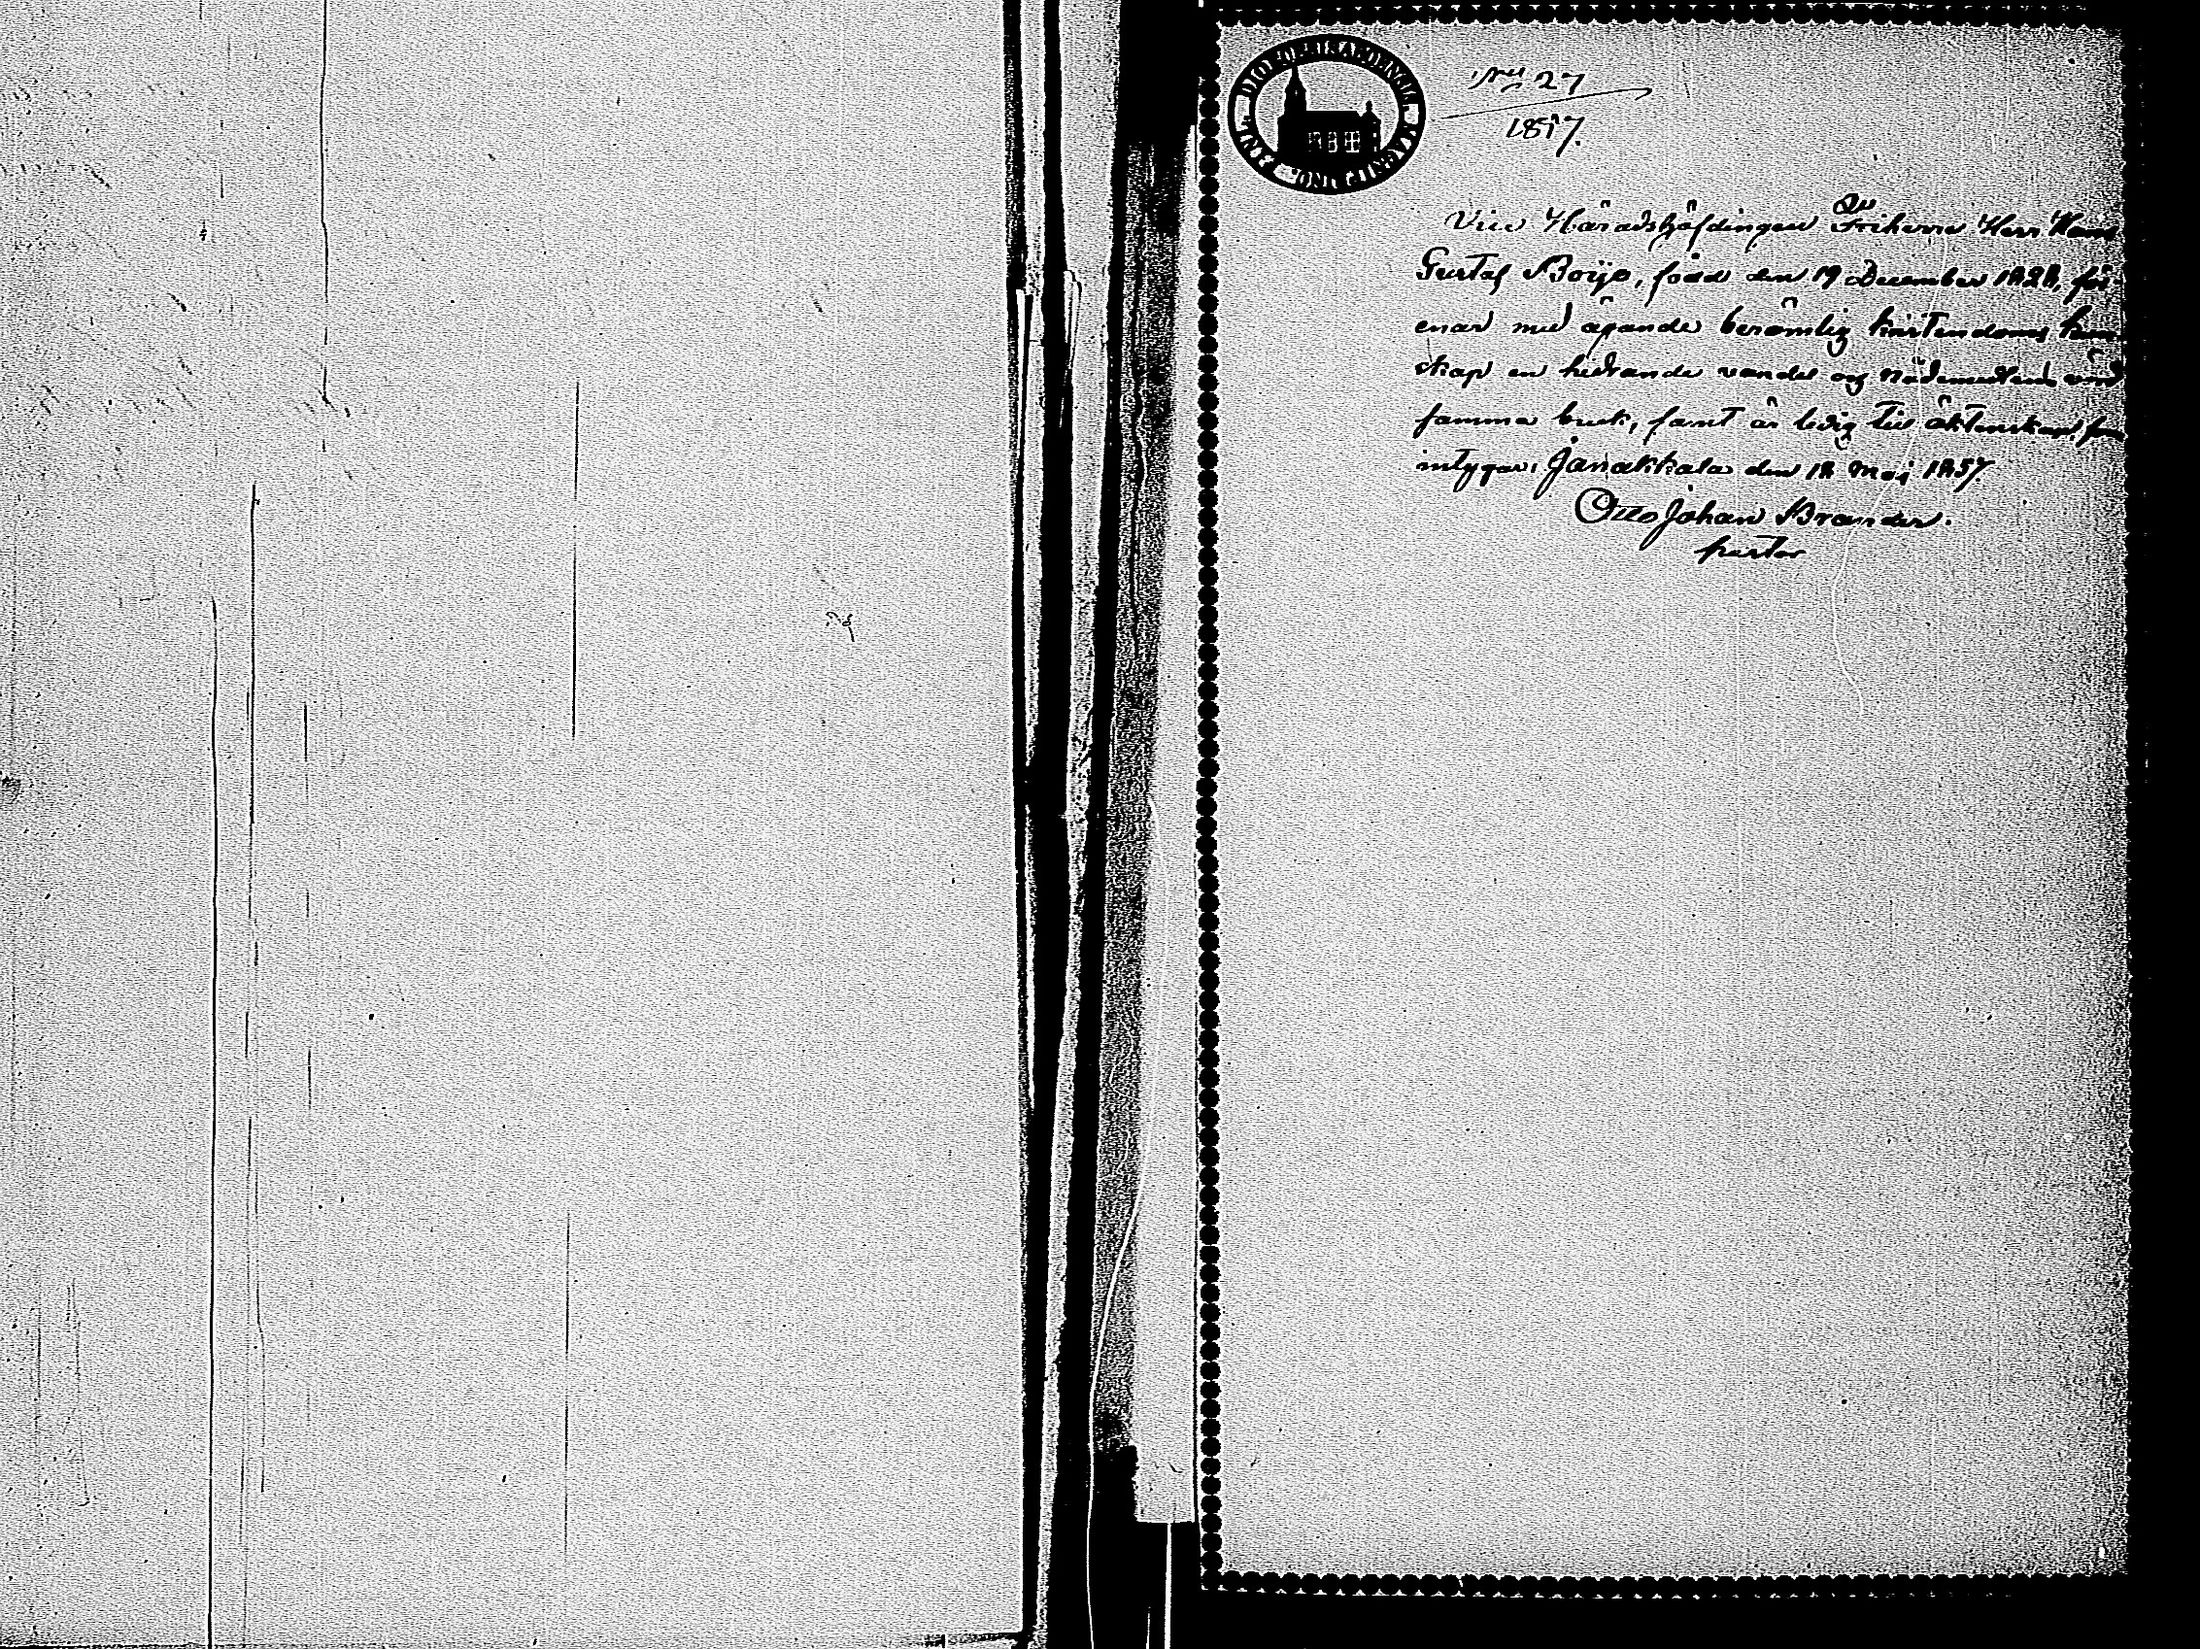 No 27
1857.
Vice Häradshöfdingen Friherre Herr Hans
Gustaf Boije, född den 19 December 1828, för-
enar med ägande berömlig kristendoms kun
skap en hedrande vandel og nådemedlens
samma bruk, samt är ledig till äktenskap,
intygar, Janakkala den 18 Maj 1857.
Otto Johan Brander.
pastor